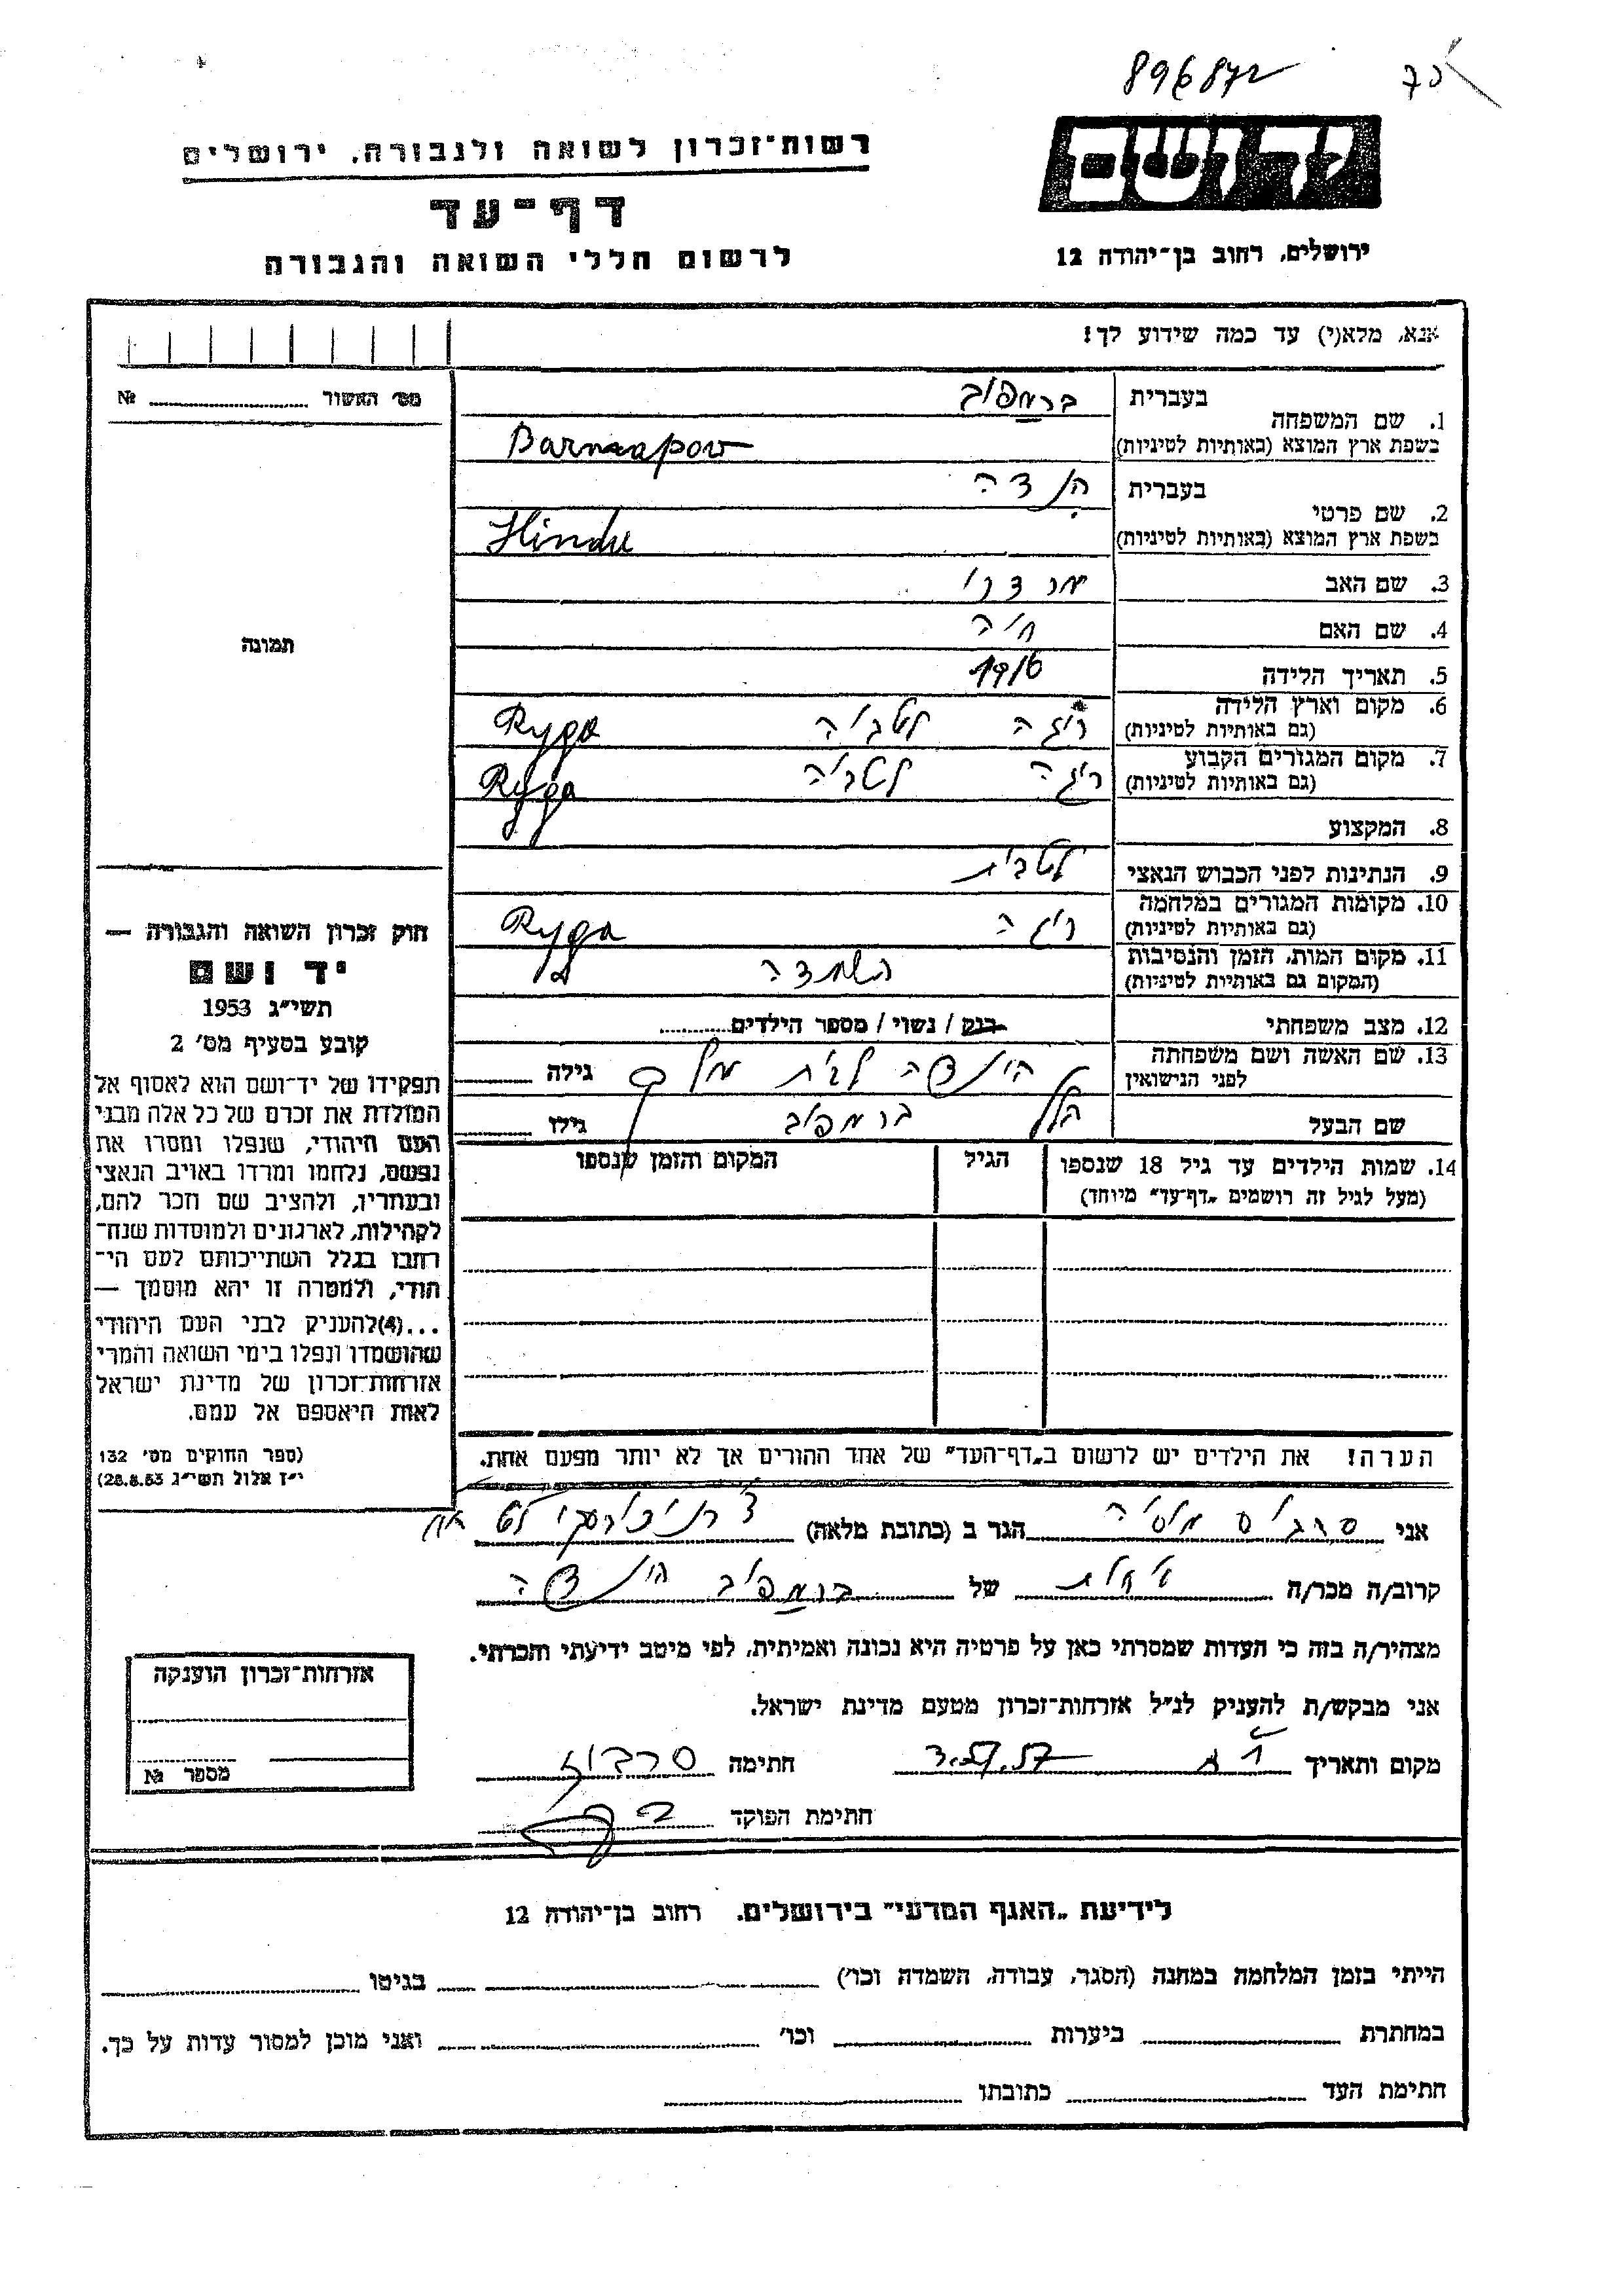 896872
יד ושם
רשות־זכרון לשואה ולגבורה, ירושלים
דף־עד
לרשום חללי השואה והגבורה
ירושלים, רחוב בן־יהודה 12
אנא, מלא(י) עד כמה שידוע לך!
מס׳ האשור № 
1. שם המשפחה בעברית ברמפוב
בשפת ארץ המוצא (באותיות לטיניות) Barmapow
2. שם פרטי בעברית הינדה
בשפת ארץ המוצא (באותיות לטיניות) Hinda
3. שם האב מרדכי
4. שם האם חיה
5. תאריך הלידה 1916
6. מקום וארץ הלידה (גם באותיות לטיניות) ריגה לטביה Ryga
7. מקום המגורים הקבוע (גם באותיות לטיניות) ריגה לטביה Ryga
8. המקצוע
9. הנתינות לפני הכבוש הנאצי לטבית
10. מקומות המגורים במלחמה (גם באותיות לטיניות) ריגה Ryga
11. מקום המות, הזמן והנסיבות (המקום גם באותיות לטיניות) השמדה
12. מצב משפחתי רוק / נשוי / מספר הילדים
13. שם האשה ושם משפחתה לפני הנישואין הינדה לבית גילה
שם הבעל הלל ברמפוב גילו
14. שמות הילדים עד גיל 18 שנספו הגיל המקום והזמן שנספו
(מעל לגיל זה רושמים „דף־עד״ מיוחד)
הערה! את הילדים יש לרשום ב„דף־העד״ של אחד ההורים אך לא יותר מפעם אחת.
תמונה
חוק זכרון השואה והגבורה —
יד ושם
תשי״ג 1953
קובע בסעיף מס׳ 2
תפקידו של יד־ושם הוא לאסוף אל
המולדת את זכרם של כל אלה מבני
העם היהודי, שנפלו ומסרו את
נפשם, נלחמו ומרדו באויב הנאצי
ובעוזריו, ולהציב שם וזכר להם,
לקהילות, לארגונים ולמוסדות שנח־
רבו בגלל השתייכותם לעם הי־
הודי, ולמטרה זו יהא מוסמך —
...(4)להעניק לבני העם היהודי
שהושמדו ונפלו בימי השואה והמרי
אזרחות־זכרון של מדינת ישראל
לאות היאספם אל עמם.
(ספר החוקים מס׳ 132
י״ז אלול תשי״ג 28.8.53)
אני הגר ב (כתובת מלאה)
קרוב/ה מכר/ה של ברמפוב הינדה
מצהיר/ה בזה כי העדות שמסרתי כאן על פרטיה היא נכונה ואמיתית, לפי מיטב ידיעתי והכרתי.
אני מבקש/ת להעניק לנ״ל אזרחות־זכרון מטעם מדינת ישראל.
מקום ותאריך חתימה
חתימת הפוקד
אזרחות־זכרון הוענקה
מספר №
לידיעת „האגף המדעי״ בירושלים, רחוב בן־יהודה 12
הייתי בזמן המלחמה במחנה (הסגר, עבודה, השמדה וכו׳) בגיטו
במחתרת ביערות וכו׳ ואני מוכן למסור עדות על כך.
חתימת העד כתובתו